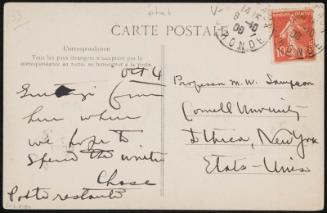 CARTE POSTALE
Correspondance
Tous les pays étrangers n'acceptent pas la
correspondance au recto
Oct 4
Greetings from
here where
we hope to
spend the winter
Chase
Poste restante
Professor M. W. Sampson
Cornell University
Ithica, New York
Etats-Unis